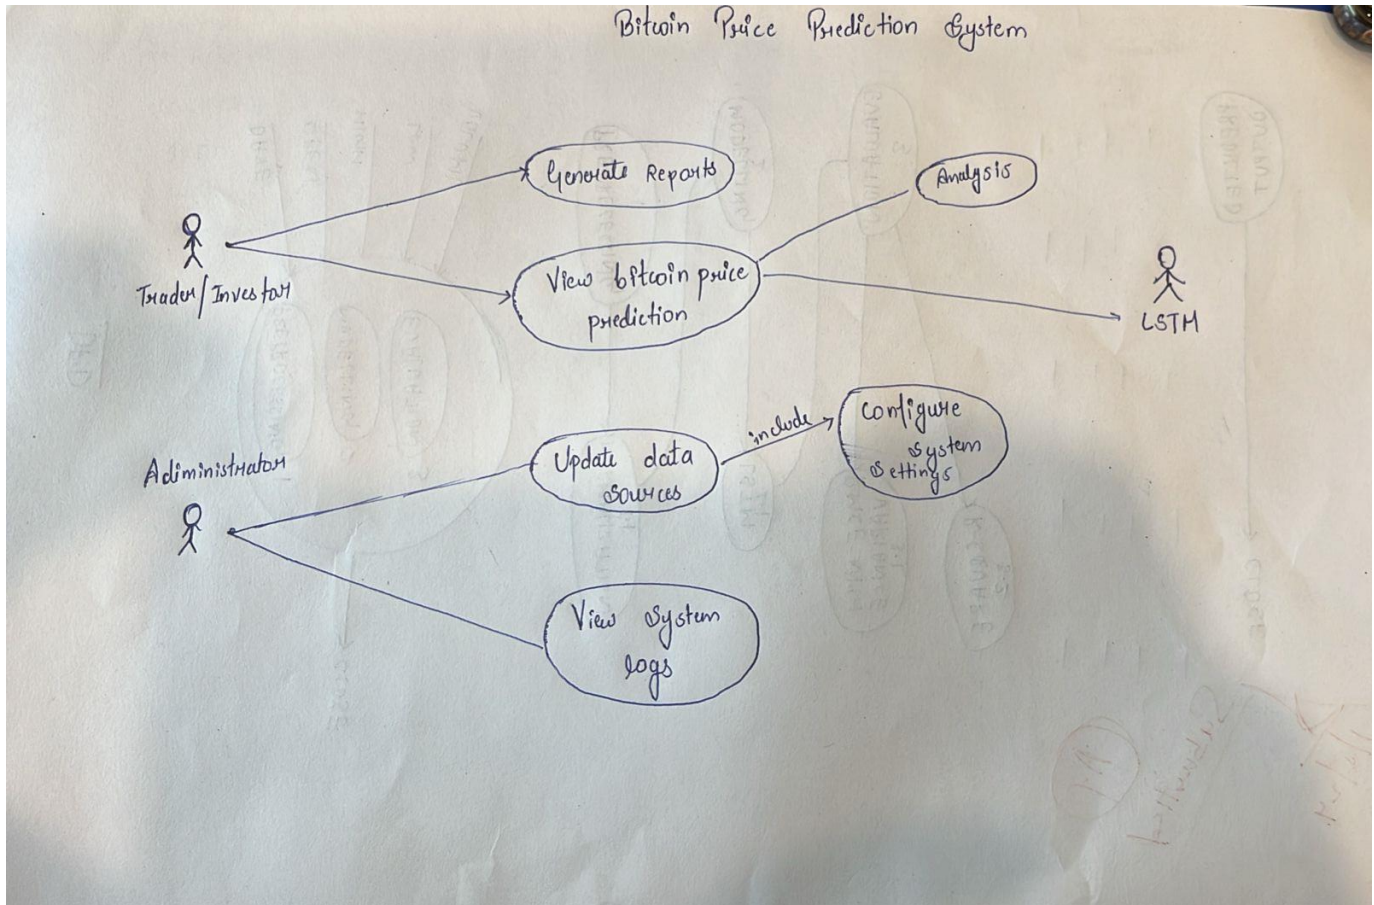 Bitcoin Price Prediction System
Generate Reports
Analysis
Trader/Investor
View bitcoin price
prediction
LSTM
Administrator
Update data
sources
include
Configure
System
Settings
View System
logs